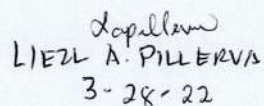 LIEZL A. PILLERVA
3-28-22